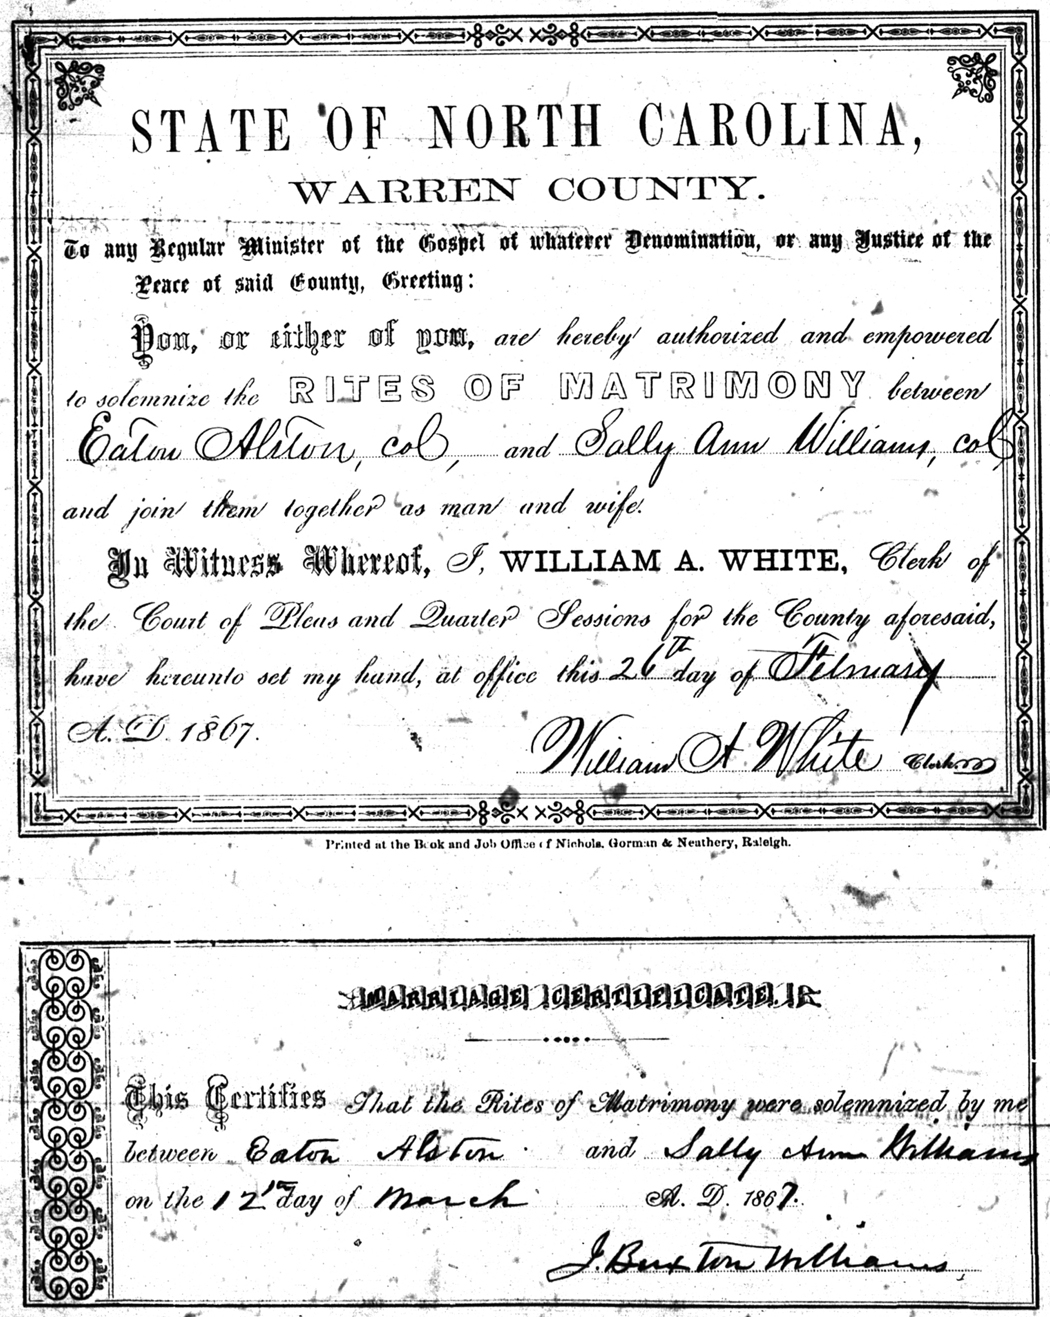 STATE OF NORTH CAROLINA,
WARREN COUNTY.
To any Regular Minister of the Gospel of whatever Denomination, or any Justice of the
Peace of said County, Greeting:
You, or either of you, are hereby authorized and empowered
to solemnize the RITES OF MATRIMONY between
Eaton Alston, col, and Sally Ann Williams, col,
and join them together as man and wife.
In Witness Whereof, I, WILLIAM A. WHITE, Clerk of
the Court of Pleas and Quarter Sessions for the County aforesaid,
have hereunto set my hand, at office this 26th day of February
A. D. 1867.
William A White Clerk.
Printed at the Book and Job Office of Nichols, Gorman & Neathery, Raleigh.
MARRIAGE CERTIFICATE.
This Certifies That the Rites of Matrimony were solemnized by me
between Eaton Alston and Sally Ann Williams
on the 12th day of March A. D. 1867.
J. Buxton Williams